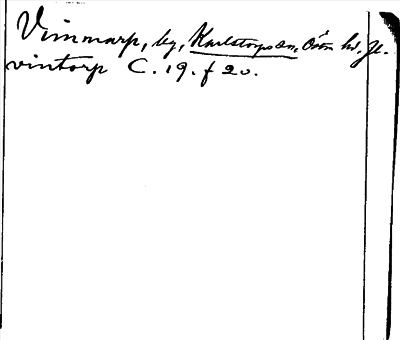 Vinmarp, by, Karlstorps sn, Östra hd, Jr.
vintorp C. 19. f 20.